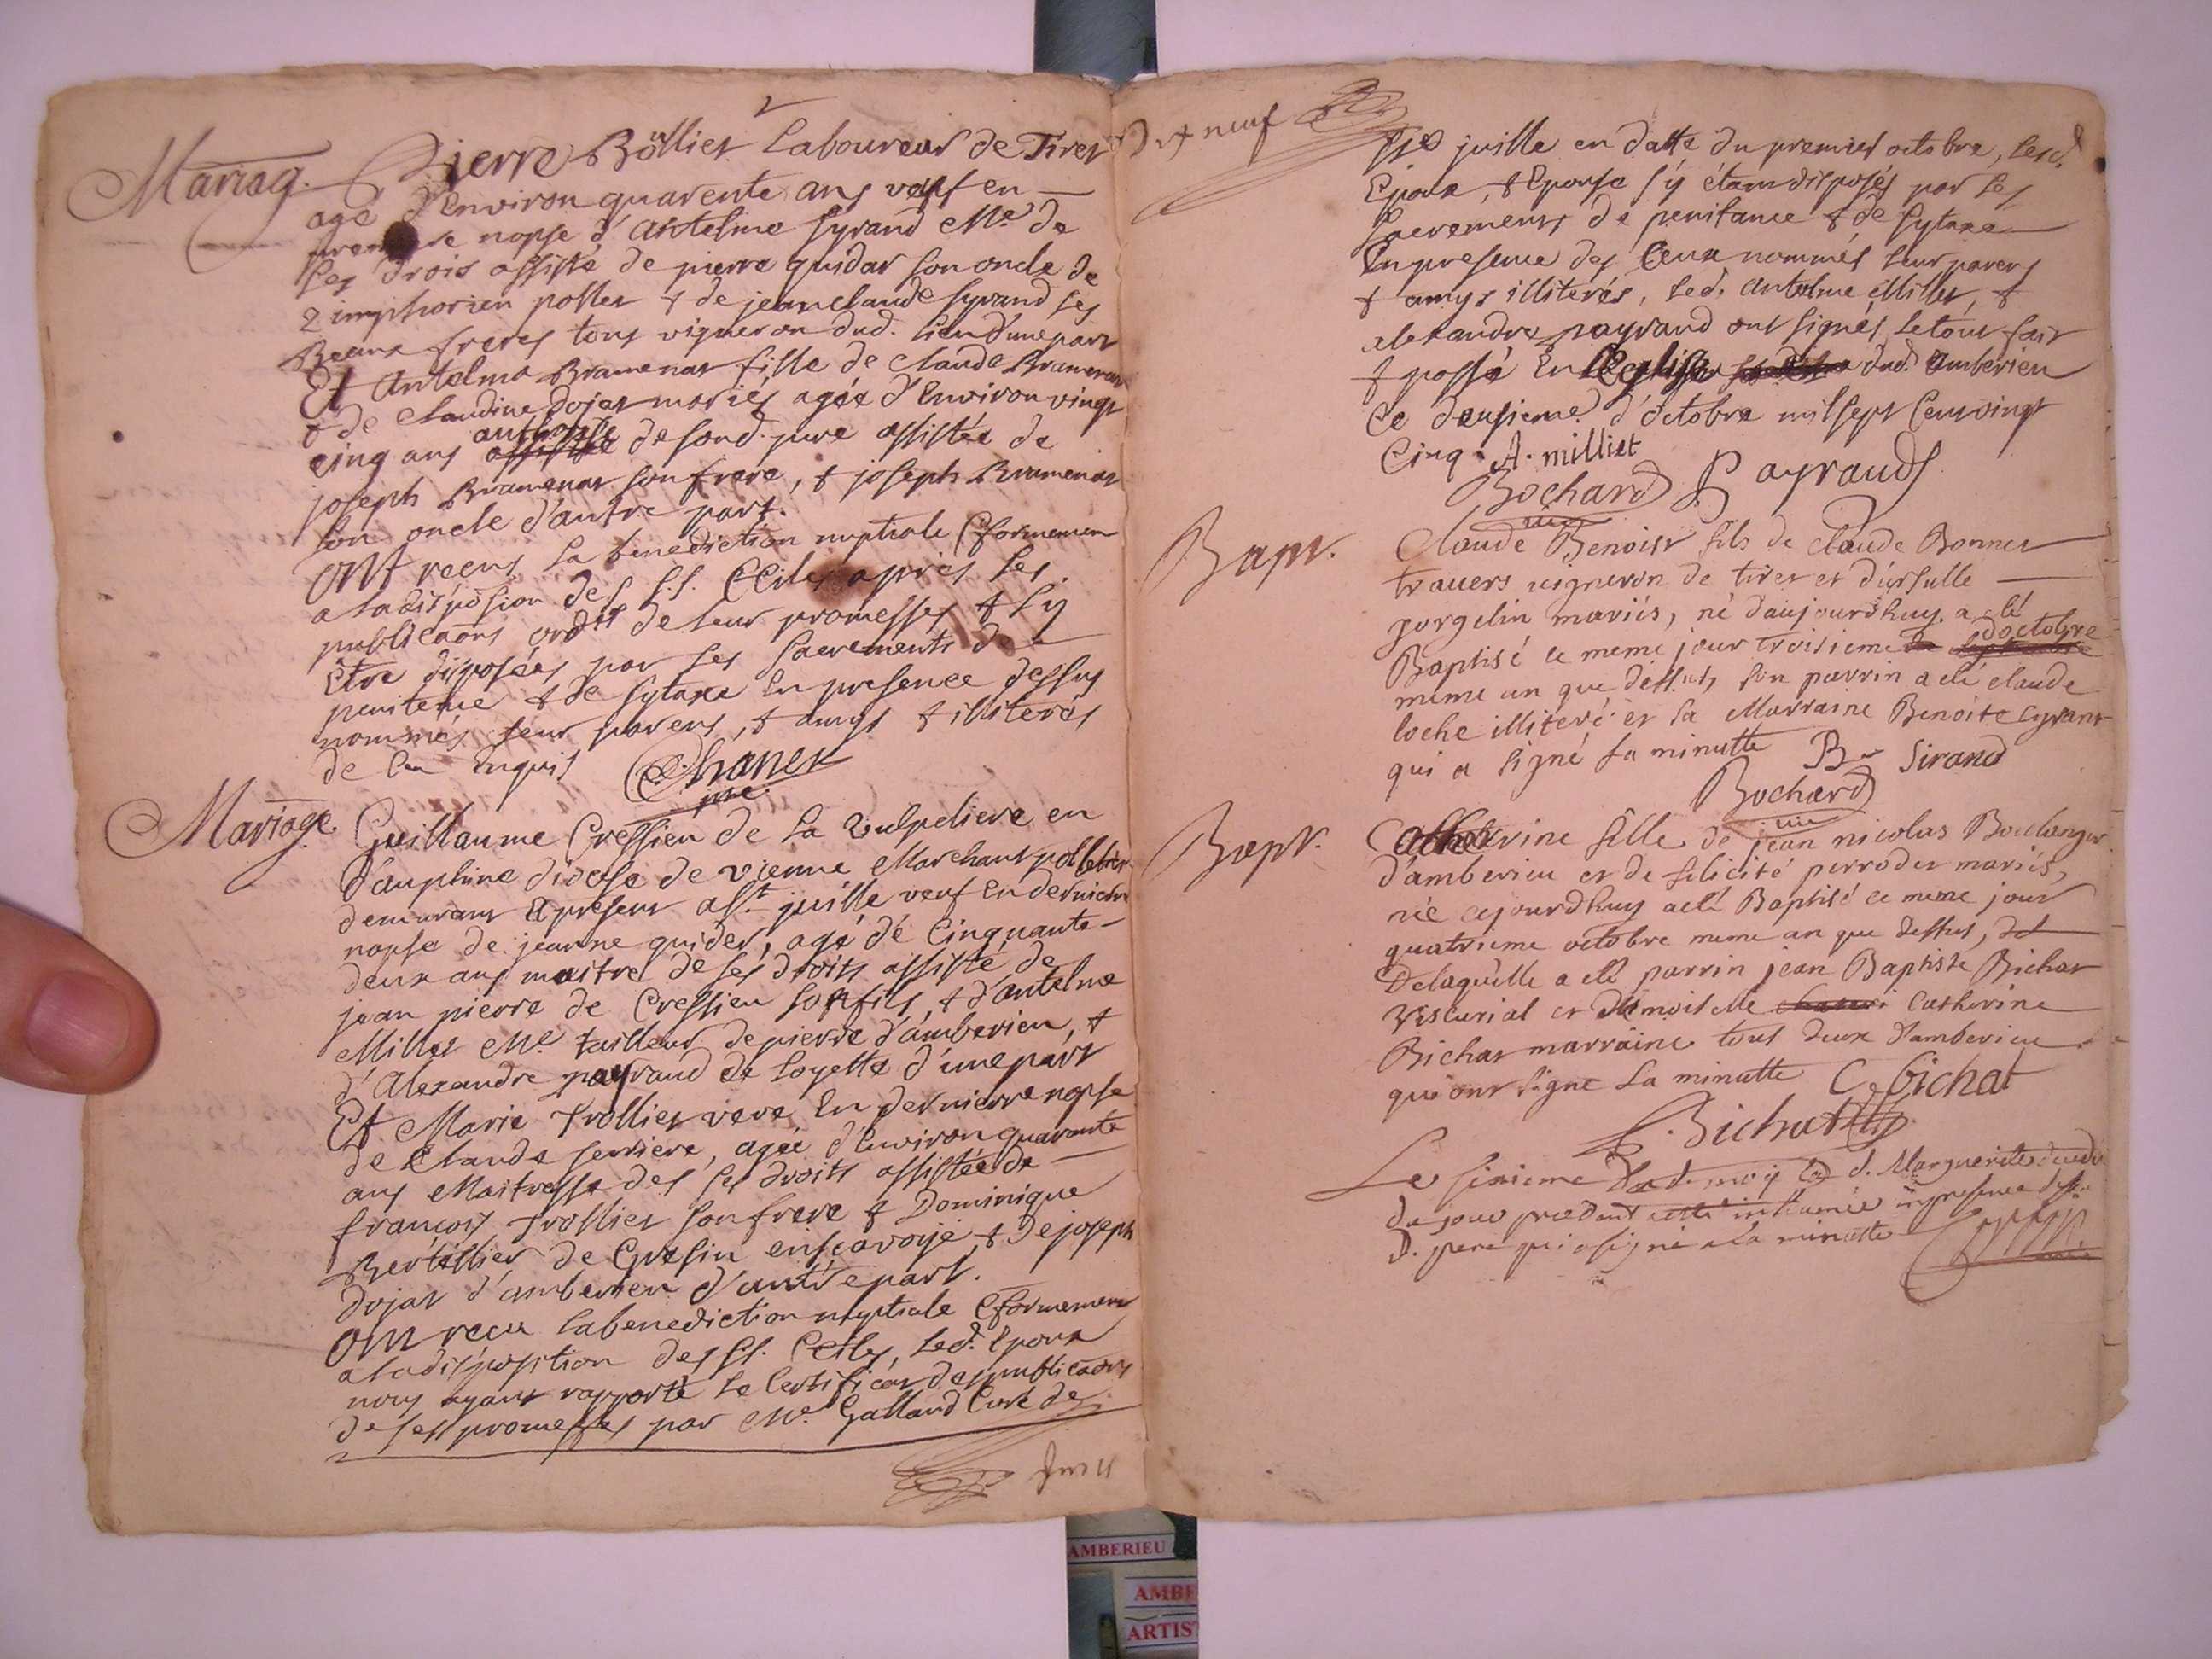 Mariag.
Pierre Böllier Laboureur de Tiret
agé d'Environ quarente ans veuf en
premiere nopse d'Antelme Syrand Me. de
ses drois assisté de pierre guidar son oncle de
Simphorien polles & de jeanclaude Syrand ses
Beaux freres tous vigneron dud. lieu d'une part
Et Antelma Bramenar fille de Claude Bramenar
& de Claudine Dojat mariés agée d'Environ vingt
cinq ans authorisée de soud. pere assistée de
joseph Bramenar son frere, & joseph Bramenar
son oncle d'autre part.
ONt receus la benediction nuptiale Cformemen
a la disposion des S.S. CCiles apriés les
publicaons ordres de leur promesses & s'y
Etre disposées par les sacrements de
penitence & de Sytaxe En presence dessus
nommés leur parens, & amys & illiterés
de ce Enquis
Mariage
Guillaume Cressieu de la vulpeliere en
Dauphiné diocese de vienne Marchant
demeurant a present a St. juille veuf en derniere
nopse de jeanne guider, agé de Cinquante
deux ans maitre de ses droits assisté de
jean pierre de Cressieu son fils, & d'antelme
Millet Me. tailleur de pierre d'amberieu, &
d'Alexandre payraud de Loyette d'une part
Et Marie Trollier veve En dernierre nopse
de Claude serriere, agée d'Environ quarante
ans Maitresse des ses droits assistée de
francois Trollier son frere & Dominique
Bertillier de Gresin en scavoye, & de joseph
Dojat d'amberieu d'autre part.
ONt receu la benediction nuptiale Cformemen
a la disposition des SS. CCiles, led. Epoux
nous ayant rapporté le Certificat des publicaons
de ses promesses par Me. Galland Curé de
dix neuf
St juille en datte du premier octobre, lesd.
Epoux, & Epouse s'y étam disposés par les
sacrements de penitance & de Sytaxe
En presence des Ceux nommés leur parens
& amys illiterés, led. Antelme Millet, &
alexandre payrand ont signés, le tout fait
& passé En l'Eglise dud. Amberieu
ce deusieme d'octobre mil sept Cens vingt
Cinq. A. milliet
Bochard Payraud
Bapt.
Claude Benoist fils de Claude Bonnet
travers vigneron de tiret et d'ursulle
gorgelin mariés, né d'aujourdhuy, a eté
Baptisé ce meme jour troisieme d'octobre
meme an que dessus, son parrin a eté claude
loche illiteré et sa Marraine Benoite Syrant
qui a signé la minutte B Sirand
Bochard
Bapt.
Catherine fille de jean nicolas Boulanger
d'amberieu et de felicité perrodet mariés,
née cejourdhuy a eté Baptisé ce meme jour
quatrieme octobre meme an que dessus,
Delaquelle a eté parrin jean Baptiste Bichat
et demoiselle Catherine
Bichat marraine tous deux d'amberieu
qui ont signe la minutte C. Bichat
Bichat
Le sixieme dud. mois d. Marguerite
du jour precedent inhumée en presence
d. pere qui a signé a la minutte
AMBERIEU
AMBE
ARTIS